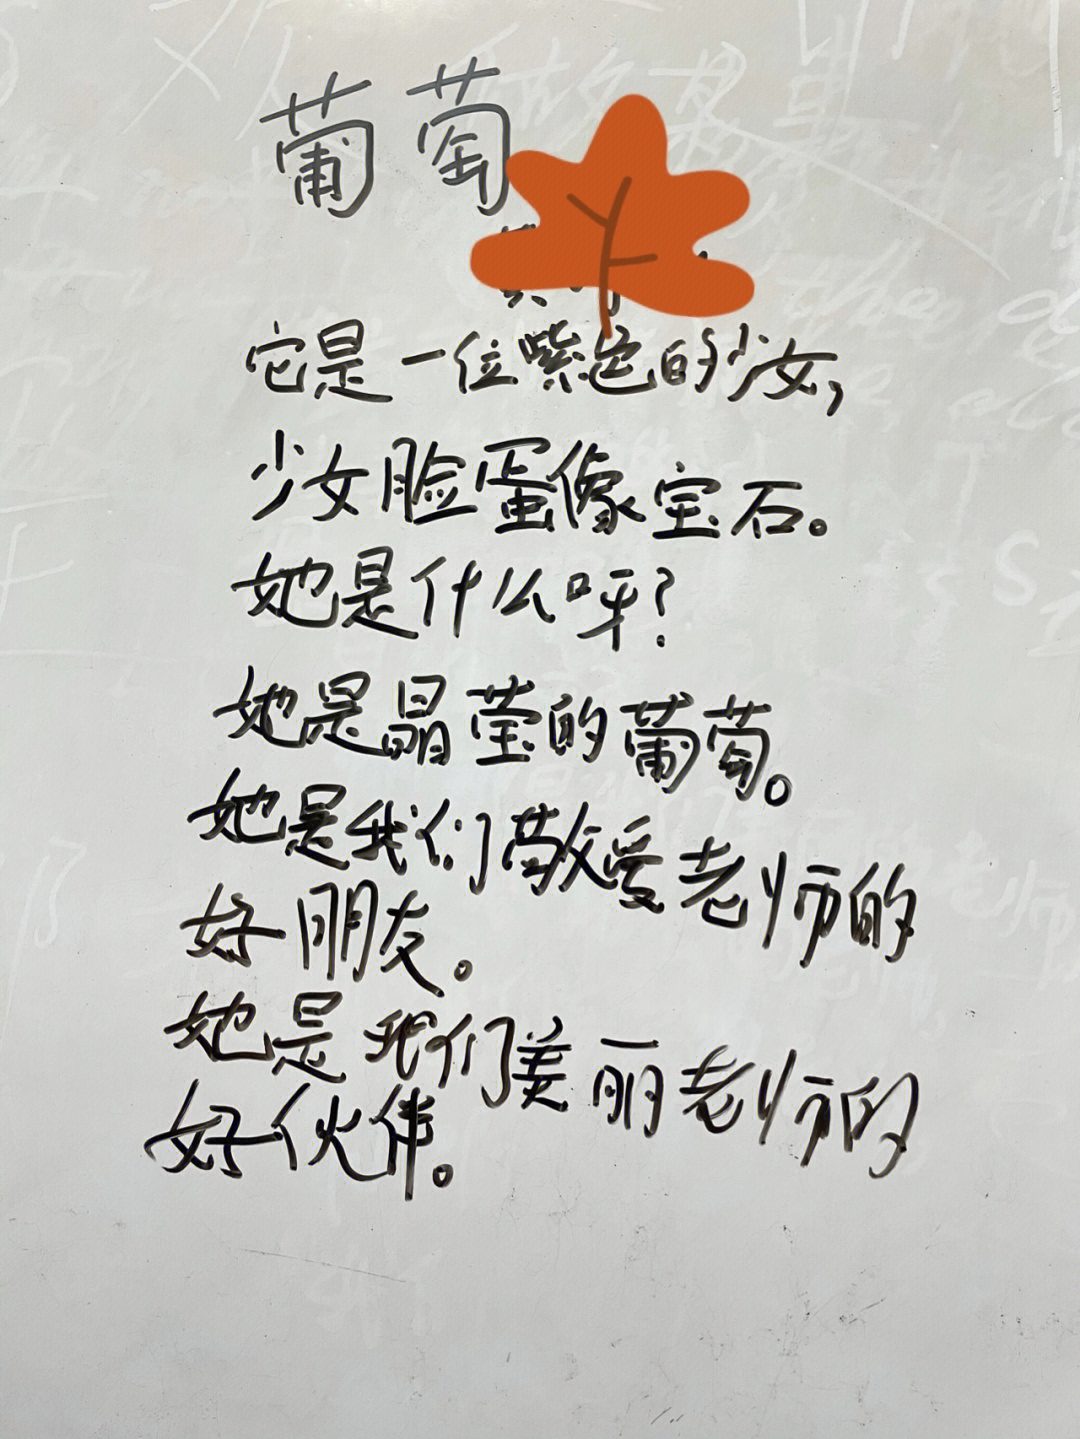 葡萄
它是一位紫色的少女，
少女脸蛋像宝石。
她是什么呀？
她是晶莹的葡萄。
她是我们敬爱老师的
好朋友。
她是我们美丽老师的
好伙伴。